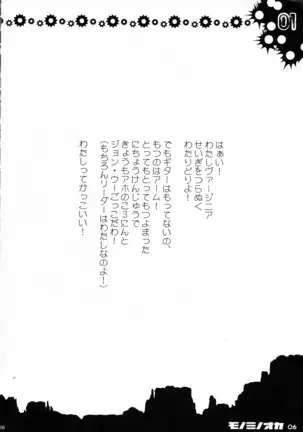 01
はぁい！
わたしヴァージニア
せいぎをつらぬく
わたりどりよ！
でもギターはもってないの、
もつのはアーム！
とってもとってもつよまった
にちょうけんじゅうで
きょうもアホのこ3にんと
ジョン・ウーごっこだわ！
（もちろんリーダーはわたしなのよ！）
わたしってかっこいい！
モノミノオカ
06